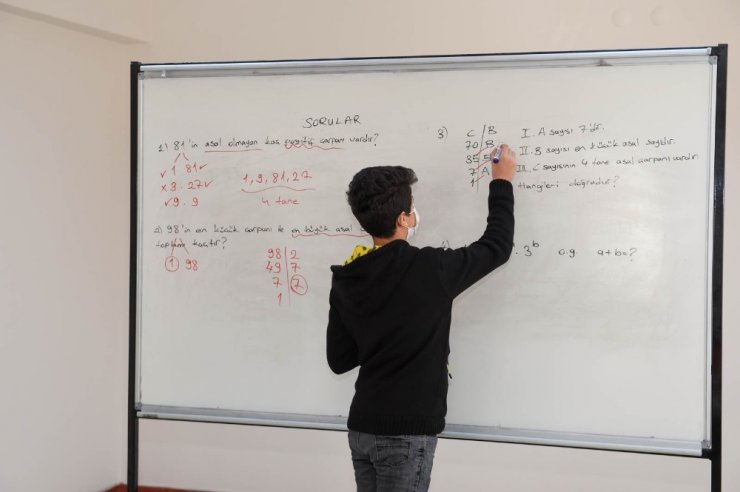 SORULAR
1) 81'in asal olmayan kaç çarpanı vardır?
✓ 1 81 ✓
x 3 . 27 ✓
✓ 9 . 9
1, 9, 81, 27
4 tane
2) 98'in en küçük çarpanı ile en büyük asal
toplamı kaçtır?
1 98
98 | 2
49 | 7
7 | 7
1
3)
C | B
70 | B
35 | 5
7 | A
1
I. A sayısı 7'dir.
II. B sayısı en küçük asal sayıdır.
III. C sayısının 4 tane asal çarpanı vardır.
Hangileri doğrudur?
. 3ᵇ a+b=?